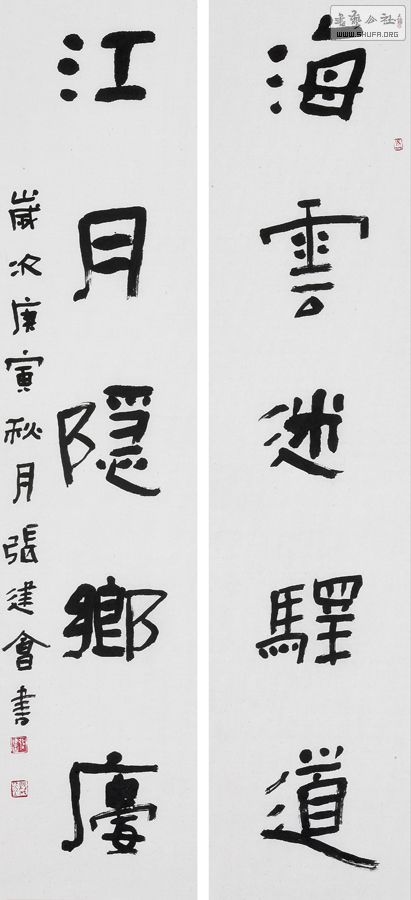 書藝公社
WWW.SHUFA.ORG
海雲迷驛道
江月隱鄉廔
歲次庚寅秋月張建會書